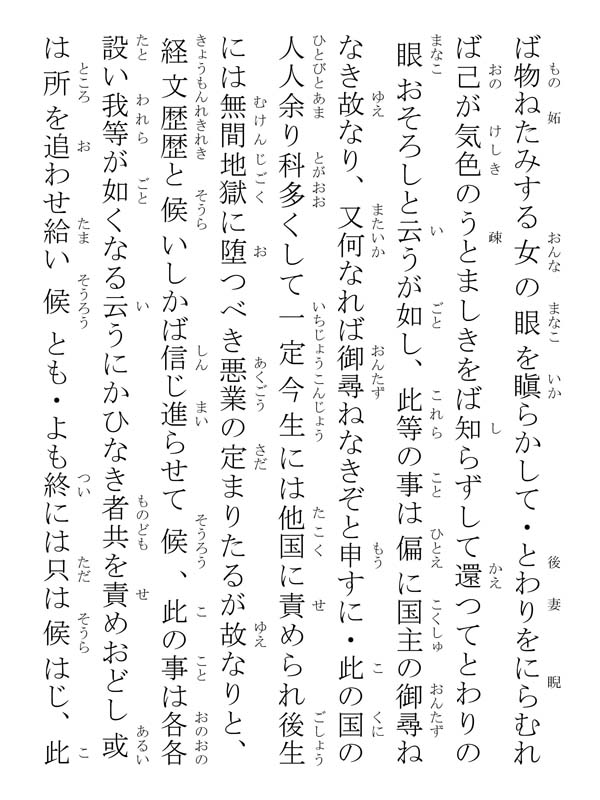 ば物ねたみする女の眼を瞋らかして・とわりをにらむれ
ば己が気色のうとましきをば知らずして還つてとわりの
眼おそろしと云うが如し、此等の事は偏に国主の御尋ね
なき故なり、又何なれば御尋ねなきぞと申すに・此の国の
人人余り科多くして一定今生には他国に責められ後生
には無間地獄に堕つべき悪業の定まりたるが故なりと、
経文歴歴と候いしかば信じ進らせて候、此の事は各各
設い我等が如くなる云うにかひなき者共を責めおどし或
は所を追わせ給い候とも・よも終には只は候はじ、此